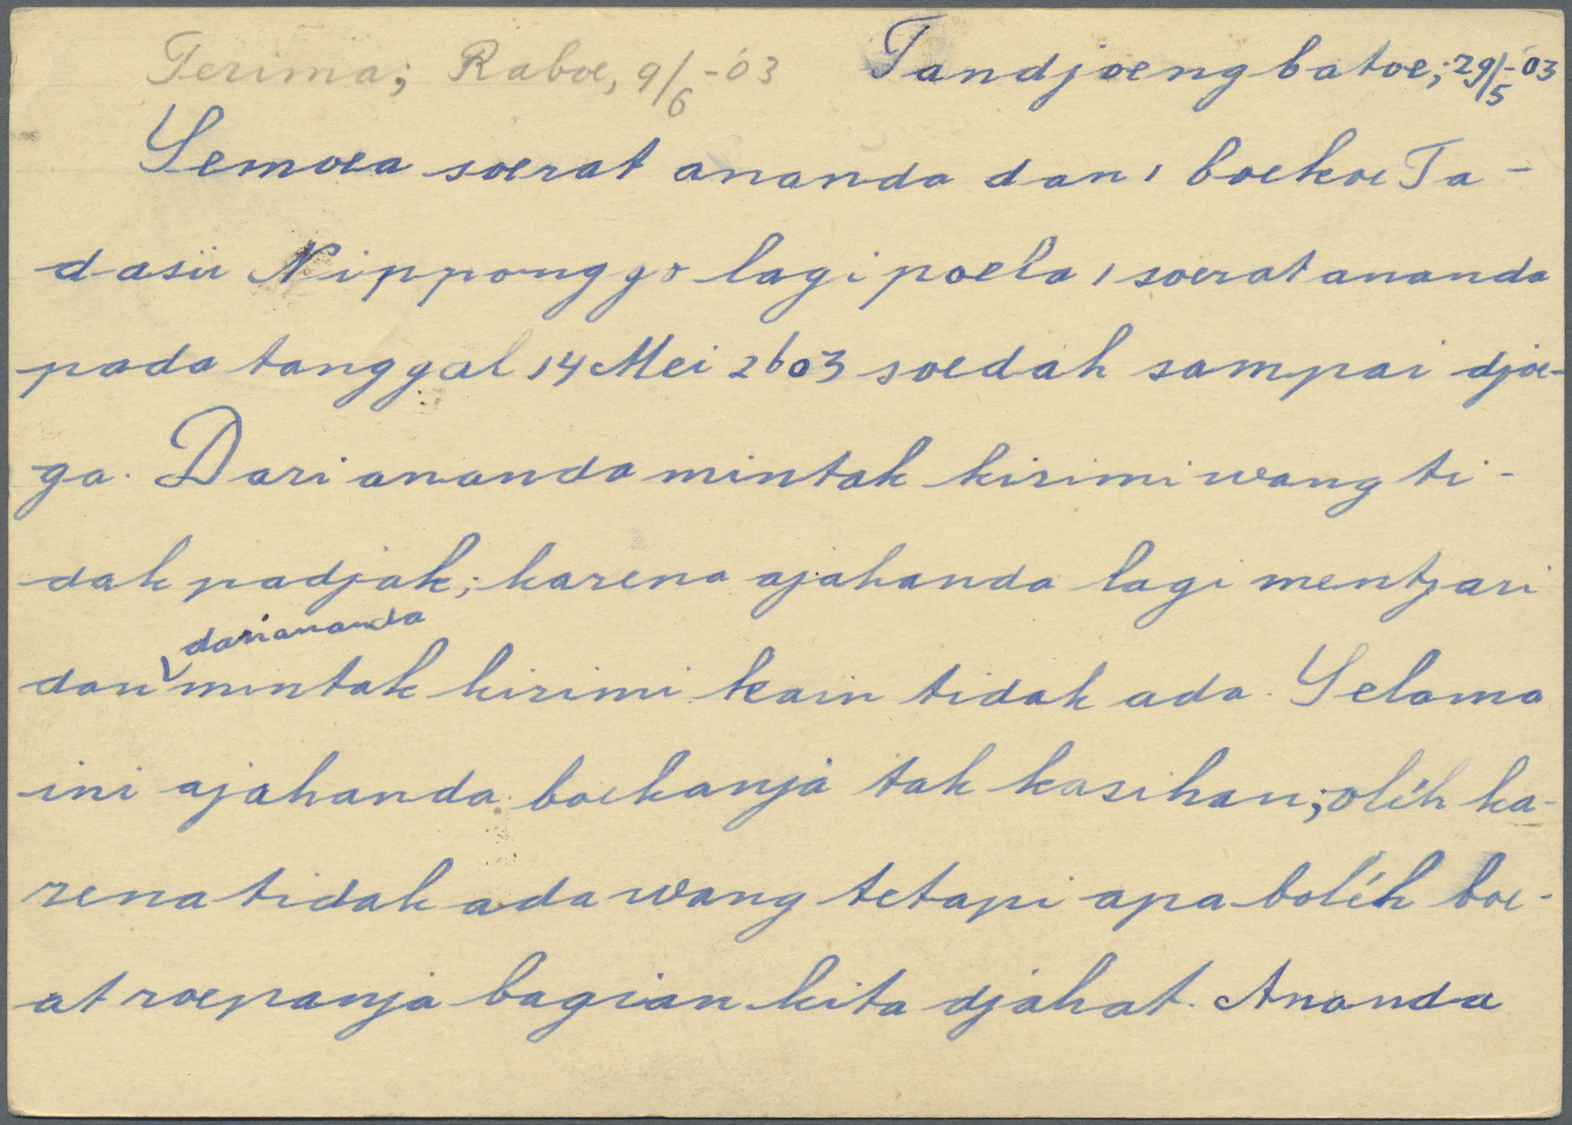 Terima; Raboe, 9/6-'03
Tandjoengbatoe; 29/5-'03
Semoea soerat ananda dan 1 boekoe Ta-
dasii Nipponggo lagi poela 1 soerat ananda
pada tanggal 14 Mei 2603 soedah sampai djoe-
ga. Dari ananda mintak kirimi wang ti-
dak padjak; karena ajahanda lagi mentjari
dari ananda
dan mintak kirimi kain tidak ada. Selama
ini ajahanda boekanja tak kasihan; oléh ka-
rena tidak ada wang tetapi apa boléh boe-
at roepanja bagian kita djahat. Ananda